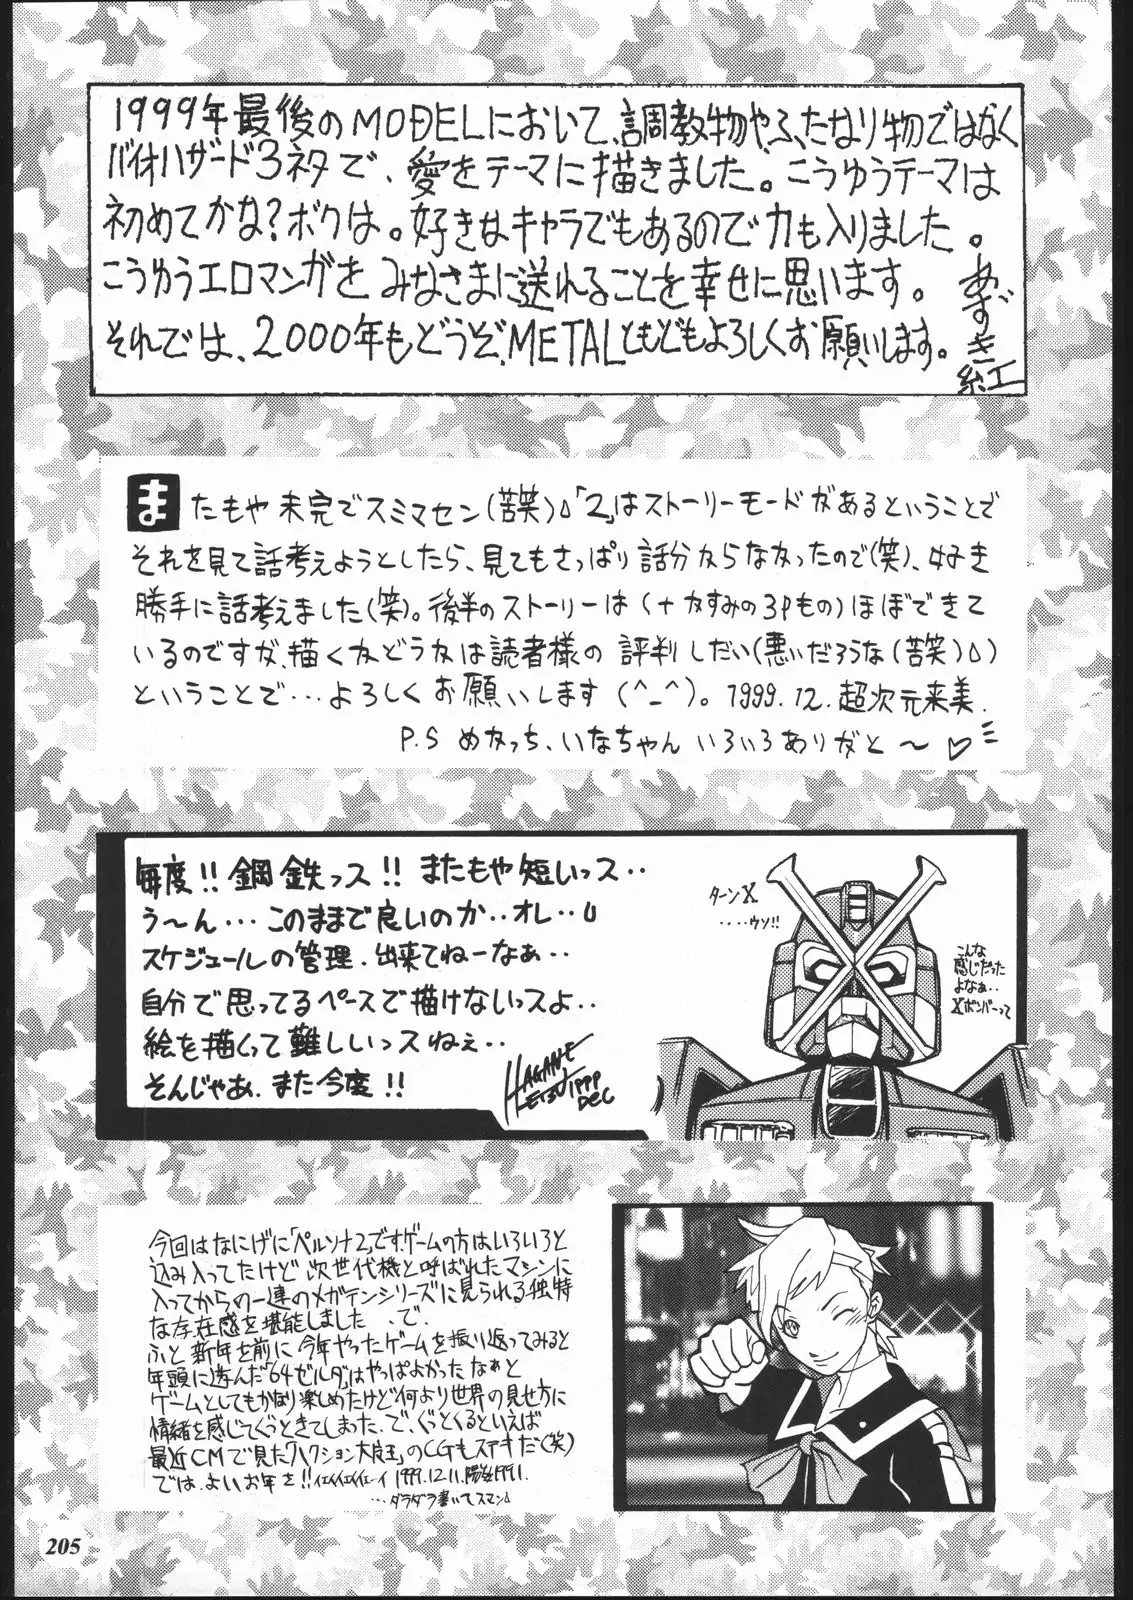 1999年最後のMODELにおいて、調教物やふたなり物ではなく
バイオハザード3ネタで、愛をテーマに描きました。こうゆうテーマは
初めてかな?ボクは。好きなキャラでもあるので力も入りました。
こうゆうエロマンガをみなさまに送れることを幸せに思います。
それでは、2000年もどうぞ、METALともどもよろしくお願いします。
あずき紅
またもや未完でスミマセン(苦笑)「2」はストーリーモードがあるということで
それを見て話考えようとしたら、見てもさっぱり話分からなかったので(笑)、好き
勝手に話考えました(笑)。後半のストーリーは(+かすみの3Pもの)ほぼできて
いるのですが、描くかどうかは読者様の評判しだい(悪いだろうな(苦笑))
ということで…よろしくお願いします(^_^)。1999.12.超次元来美.
P.S めなっち、いなちゃん いろいろありがと〜♡
毎度!!鋼鉄っス!!またもや短いっス‥
う〜ん‥‥このままで良いのか‥オレ‥
スケジュールの管理.出来てねーなぁ‥
自分で思ってるペースで描けないっスよ‥
絵を描くって難しいっスねぇ‥
そんじゃあ.また今度!!
HAGANE
TETSU
DEC
ターンX
‥‥ウソ!!
こんな
感じだった
よなぁ‥
Xボンバーって
今回はなにげに「ペルソナ2」です、ゲームの方はいろいろと
込み入ってたけど次世代機と呼ばれたマシンに
入ってからの一連のメガテンシリーズに見られる独特
な存在感を堪能しました、で、
ふと新年を前に今年やったゲームを振り返ってみると
年頭に遊んだ「64ゼルダ」はやっぱよかったなぁと
ゲームとしてもかなり楽しめたけど何より世界の見せ方に
情緒を感じてぐっときてしまった、で、ぐっとくるといえば
最近CMで見た「ハクション大魔王」のCGもステキだ(笑)
では、よいお年を!! 1999.12.11.
…ダラダラ書いてスマン
205